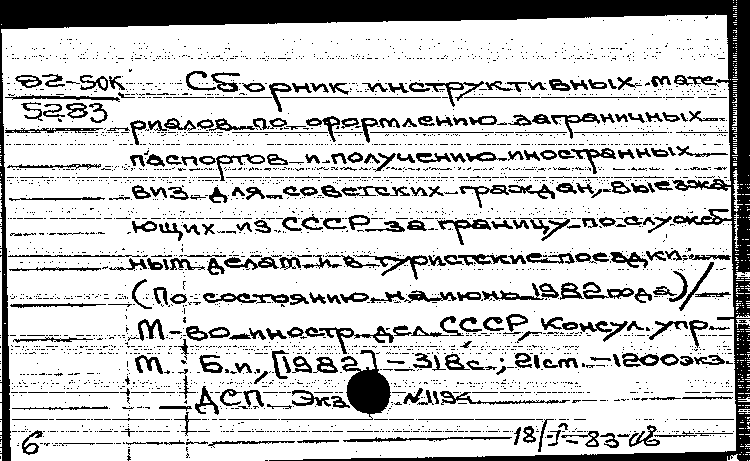 82-50к Сборник инструктивных мате-
5283
риалов по оформлению заграничных
паспортов и получению иностранных
виз для советских граждан, выезжа-
ющих из СССР за границу по служеб-
ным делам и в туристские поездки.
(По состоянию на июнь 1982 года)/
М-во иностр. дел СССР, Консул. упр. -
М.: Б.и., [1982] - 318с.; 21см. - 1200экз.
ДСП. Экз. №1194
6 18/I-83